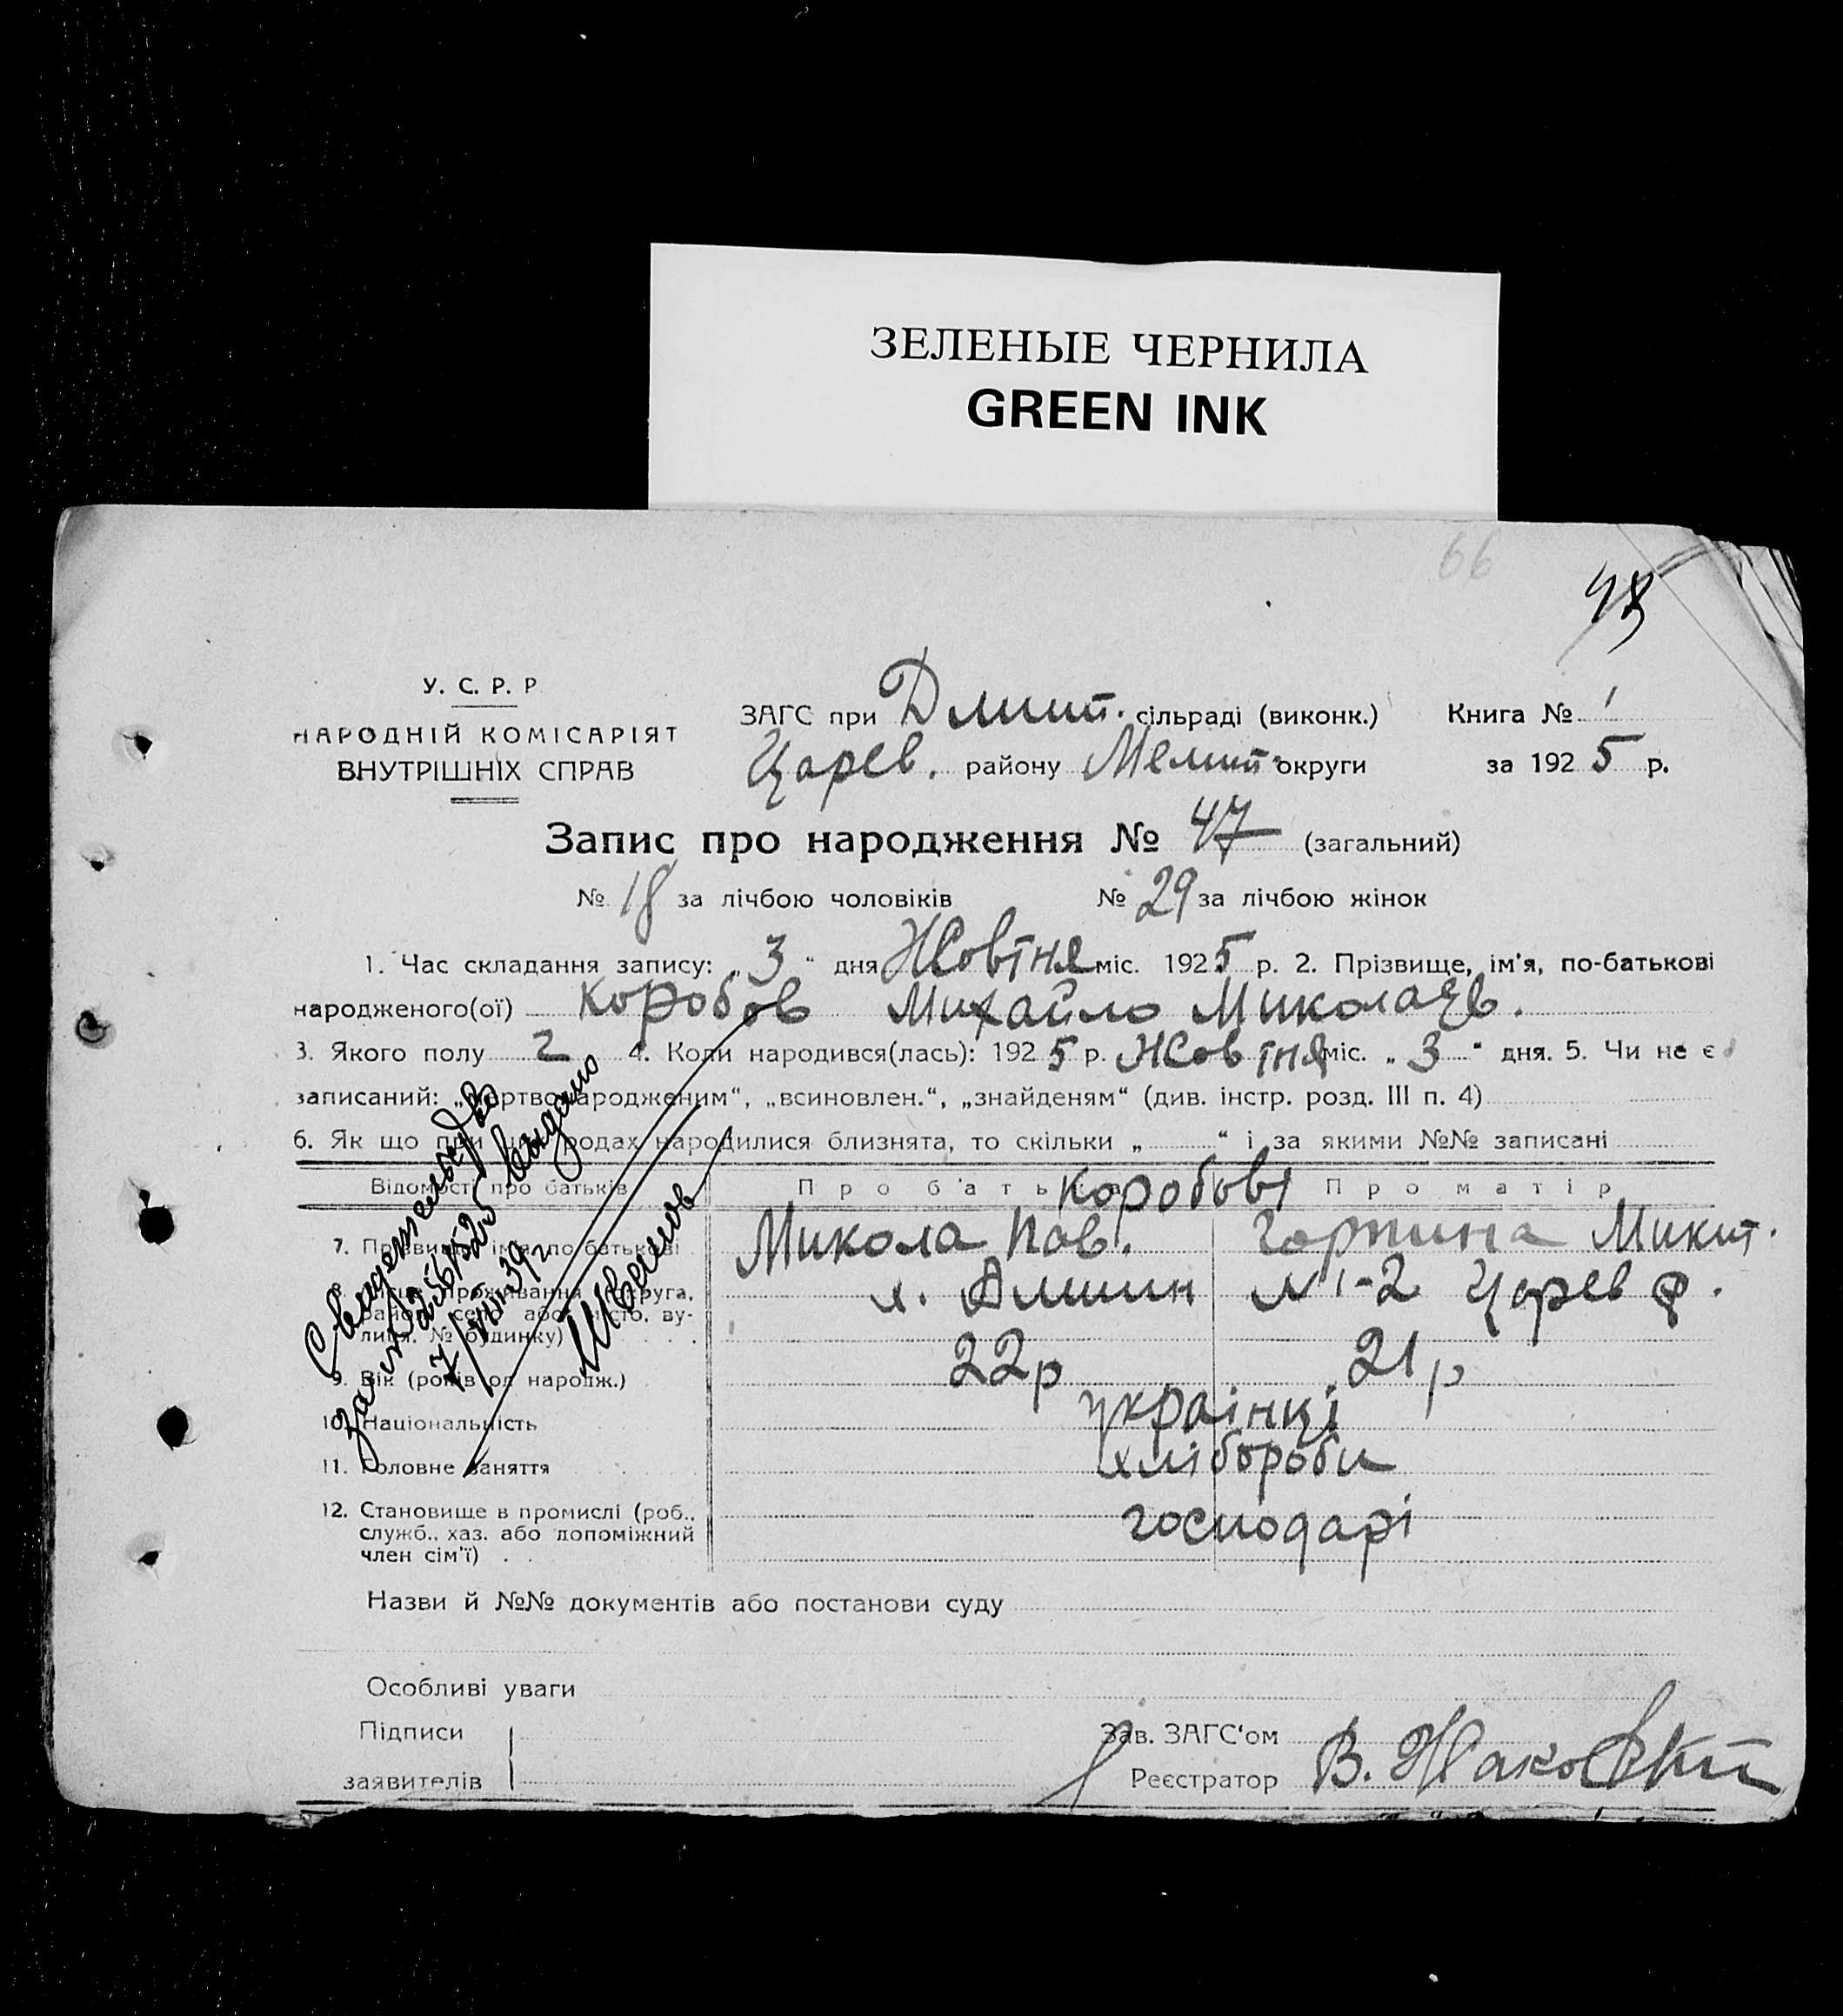 ЗЕЛЕНЫЕ ЧЕРНИЛА
GREEN INK
66
48
У. С. Р. Р.
НАРОДНІЙ КОМІСАРІЯТ
ВНУТРІШНІХ СПРАВ
ЗАГС при Дмит. сільраді (виконк.) Книга № 1
Царев. району Мелит. округи за 1925 р.
Запис про народження № 47 (загальний)
№ 18 за лічбою чоловіків № 29 за лічбою жінок
1. Час складання запису: „3“ дня Жовтня міс. 1925 р. 2. Прізвище, ім'я, по-батькові
народженого(ої) Коробов Михайло Миколаєв.
3. Якого полу 2 4. Коли народився(лась): 1925 р. Жовтня міс. „3“ дня. 5. Чи не є
записаний: „мертвонародженим“, „всиновлен.“, „знайденям“ (див. інстр. розд. III п. 4)
6. Як що при цих родах народилися близнята, то скільки „ “ і за якими №№ записані
Відомості про батьків Про батька Коробови Про матір
7. Прізвище, ім'я, по-батькові Микола Пав. Горпина Микит.
8. Місце проживання (округа, № 1-2 Царев р.
район, село або місто, ву-
лиця, № будинку)
9. Вік (років од народж.) 22р 21р
10. Національність українці
11. Головне заняття хлібороби
12. Становище в промислі (роб., господарі
служб., хаз. або допоміжний
член сім'ї)
Свидетельство
за № 256525 выдано
7/VIII 39 г
Назви й №№ документів або постанови суду
Особливі уваги
Підписи Зав. ЗАГС'ом
заявителів Реєстратор В.